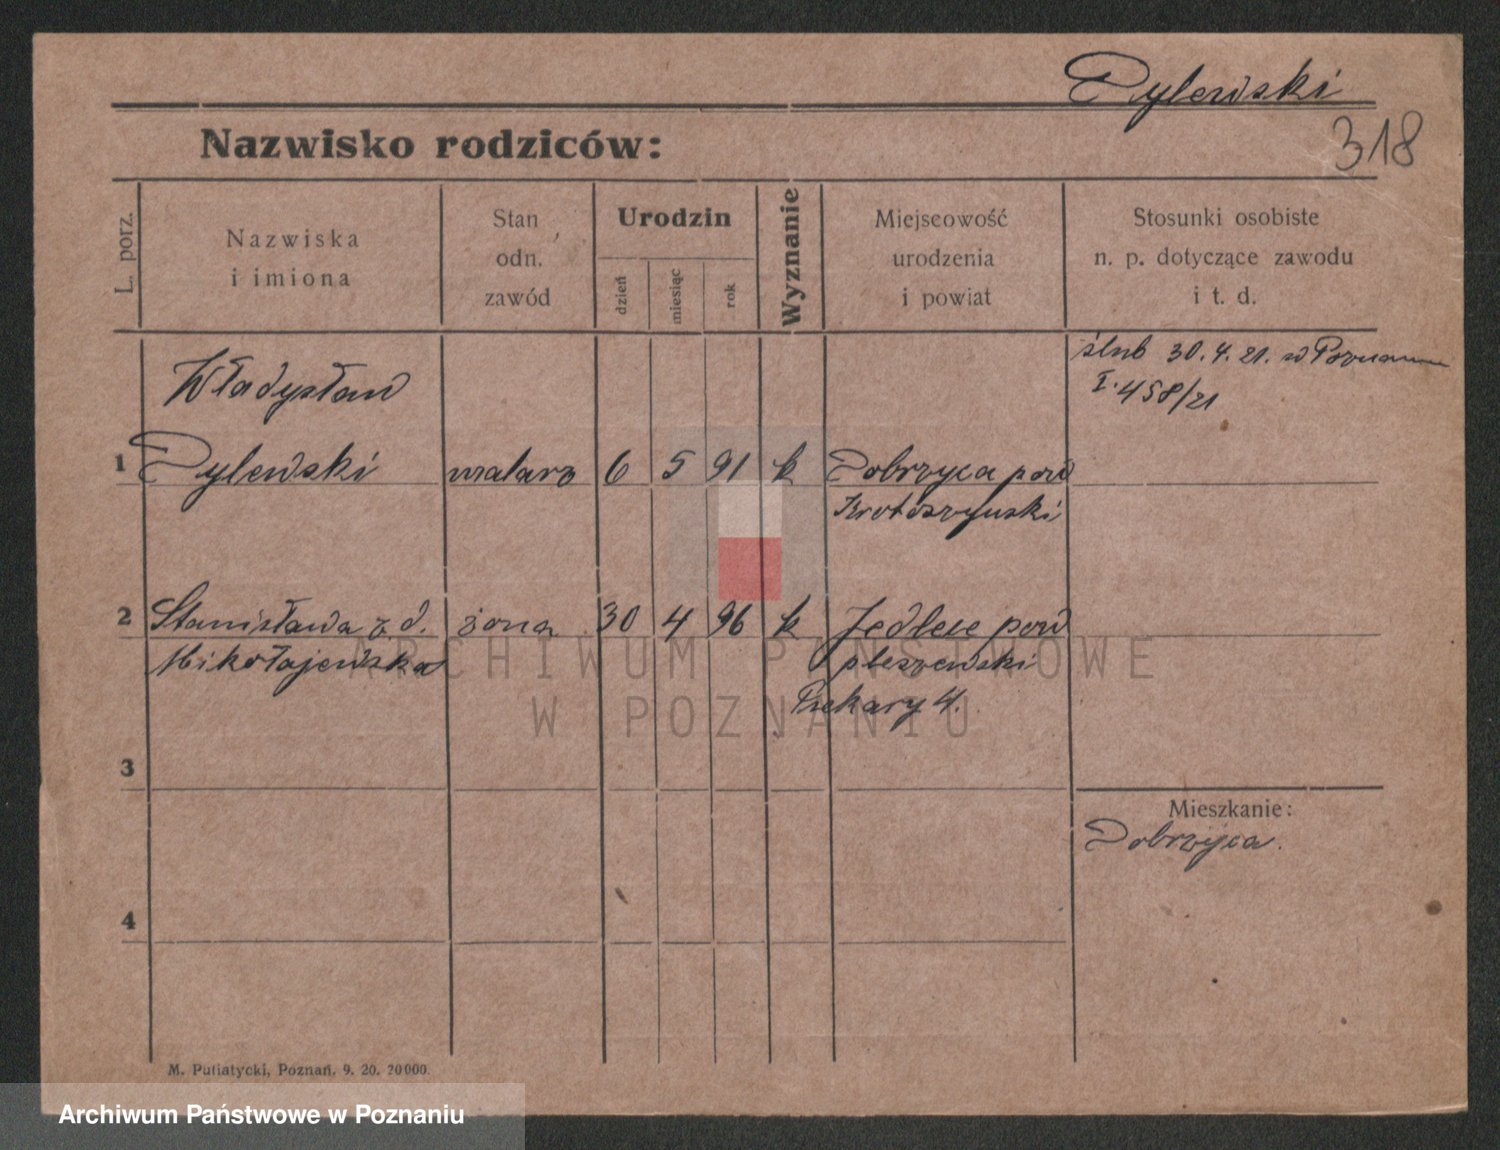 Pylewski
318
Nazwisko rodziców:
L. porz.
Nazwiska
i imiona
Stan
odn.
zawód
Urodzin
dzień
miesiąc
rok
Wyznanie
Miejscowość
urodzenia
i powiat
Stosunki osobiste
n. p. dotyczące zawodu
i t. d.
ślub 30.4.21. w Poznaniu
I. 458/21
Władysław
1 Pylewski malarz 6 5 91 k Dobrzyca pow
Krotoszyński
2 Stanisława z d. żona 30 4 96 k Jedlec pow
Mikołajewska pleszewski
Piekary 4.
3
Mieszkanie:
Dobrzyca.
4
M. Putiatycki, Poznań. 9. 20. 20000.
ARCHIWUM PAŃSTWOWE
W POZNANIU
Archiwum Państwowe w Poznaniu